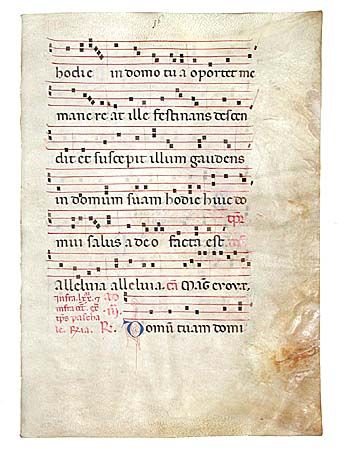 hodie in domo tua oportet me
manere at ille festinans descen
dit et suscepit illum gaudens
in domum suam hodie huic do
mui salus a deo facta est
Alleluia alleluia. Mag
infra
infra
pascha
le. R.
Domum tuam domi